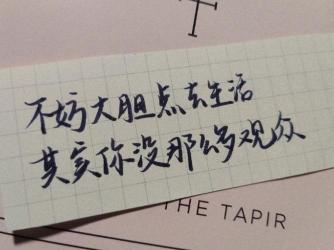 不妨大胆点去生活
其实你没那么多观众
THE TAPIR